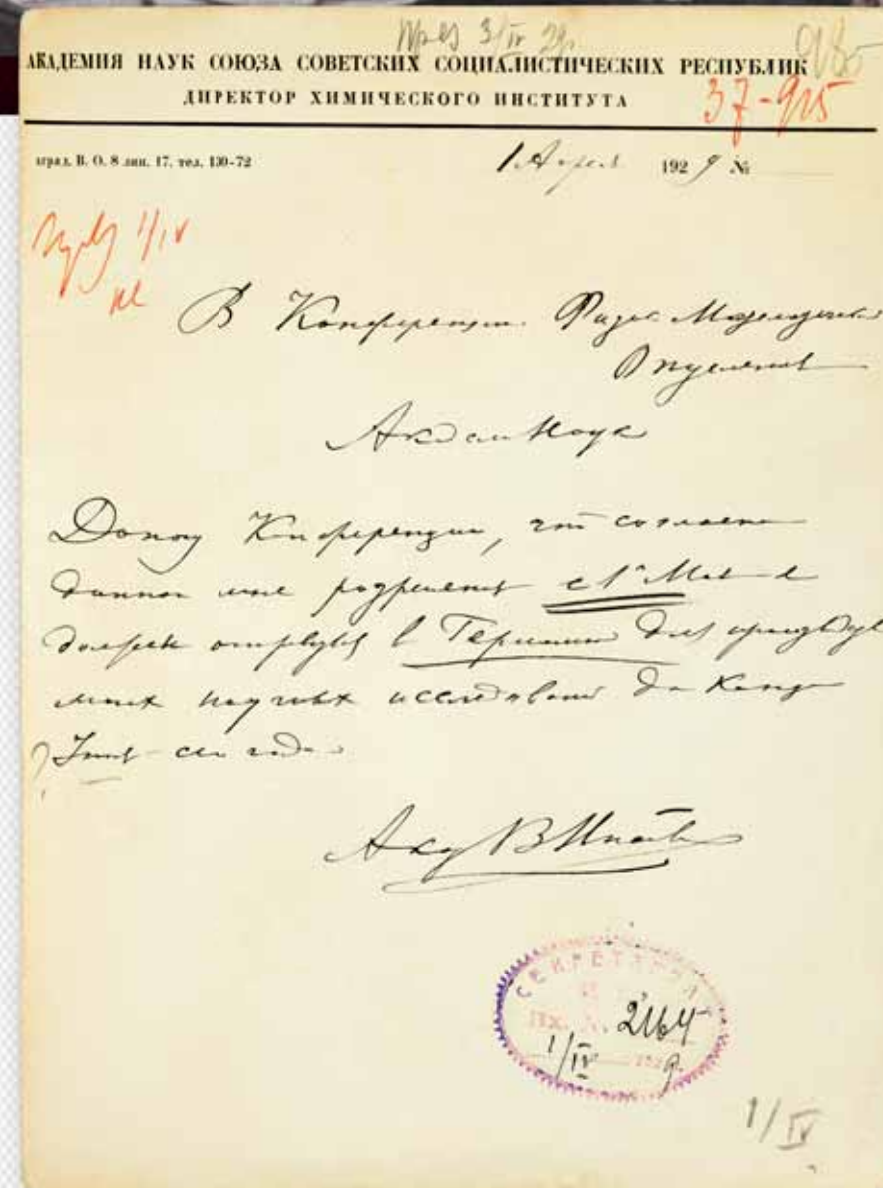 през 3/IV 29.
АКАДЕМИЯ НАУК СОЮЗА СОВЕТСКИХ СОЦИАЛИСТИЧЕСКИХ РЕСПУБЛИК
ДИРЕКТОР ХИМИЧЕСКОГО ИНСТИТУТА
37-915
аград, В. О. 8 лин. 17, тел. 130-72
1 Апреля 1929 №
1/IV
В Конференцию Физико Математическ
Отделения
Академ Наук
Доношу Конференции, что согласно
данного мне разрешения с 1го Мая я
должен в Германию для
моих научных исследований до конца
Июня сего года.
Акад В Ипатьев
СЕКРЕТАРИАТ
ВХ. №. 2164
1/IV 1929.
1/IV